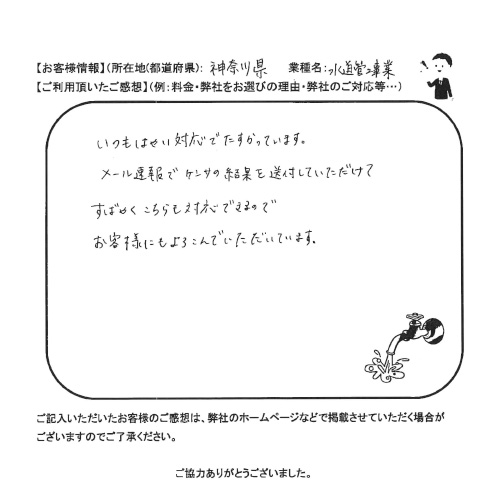 【お客様情報】(所在地(都道府県): 神奈川県 業種名: 水道管工事業
【ご利用頂いたご感想】(例:料金・弊社をお選びの理由・弊社のご対応等…)
いつもはやい対応でたすかっています。
メール速報でケンサの結果を送付していただけて
すばやくこちらも対応できるので
お客様にもよろこんでいただいています。
ご記入いただいたお客様のご感想は、弊社のホームページなどで掲載させていただく場合が
ございますのでご了承ください。
ご協力ありがとうございました。